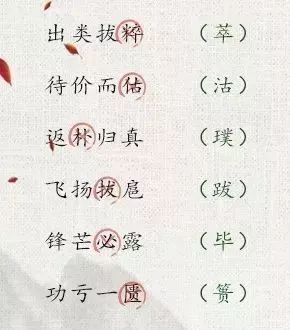 出类拔粹（萃）
待价而估（沽）
返朴归真（璞）
飞扬拔扈（跋）
锋芒必露（毕）
功亏一匮（篑）